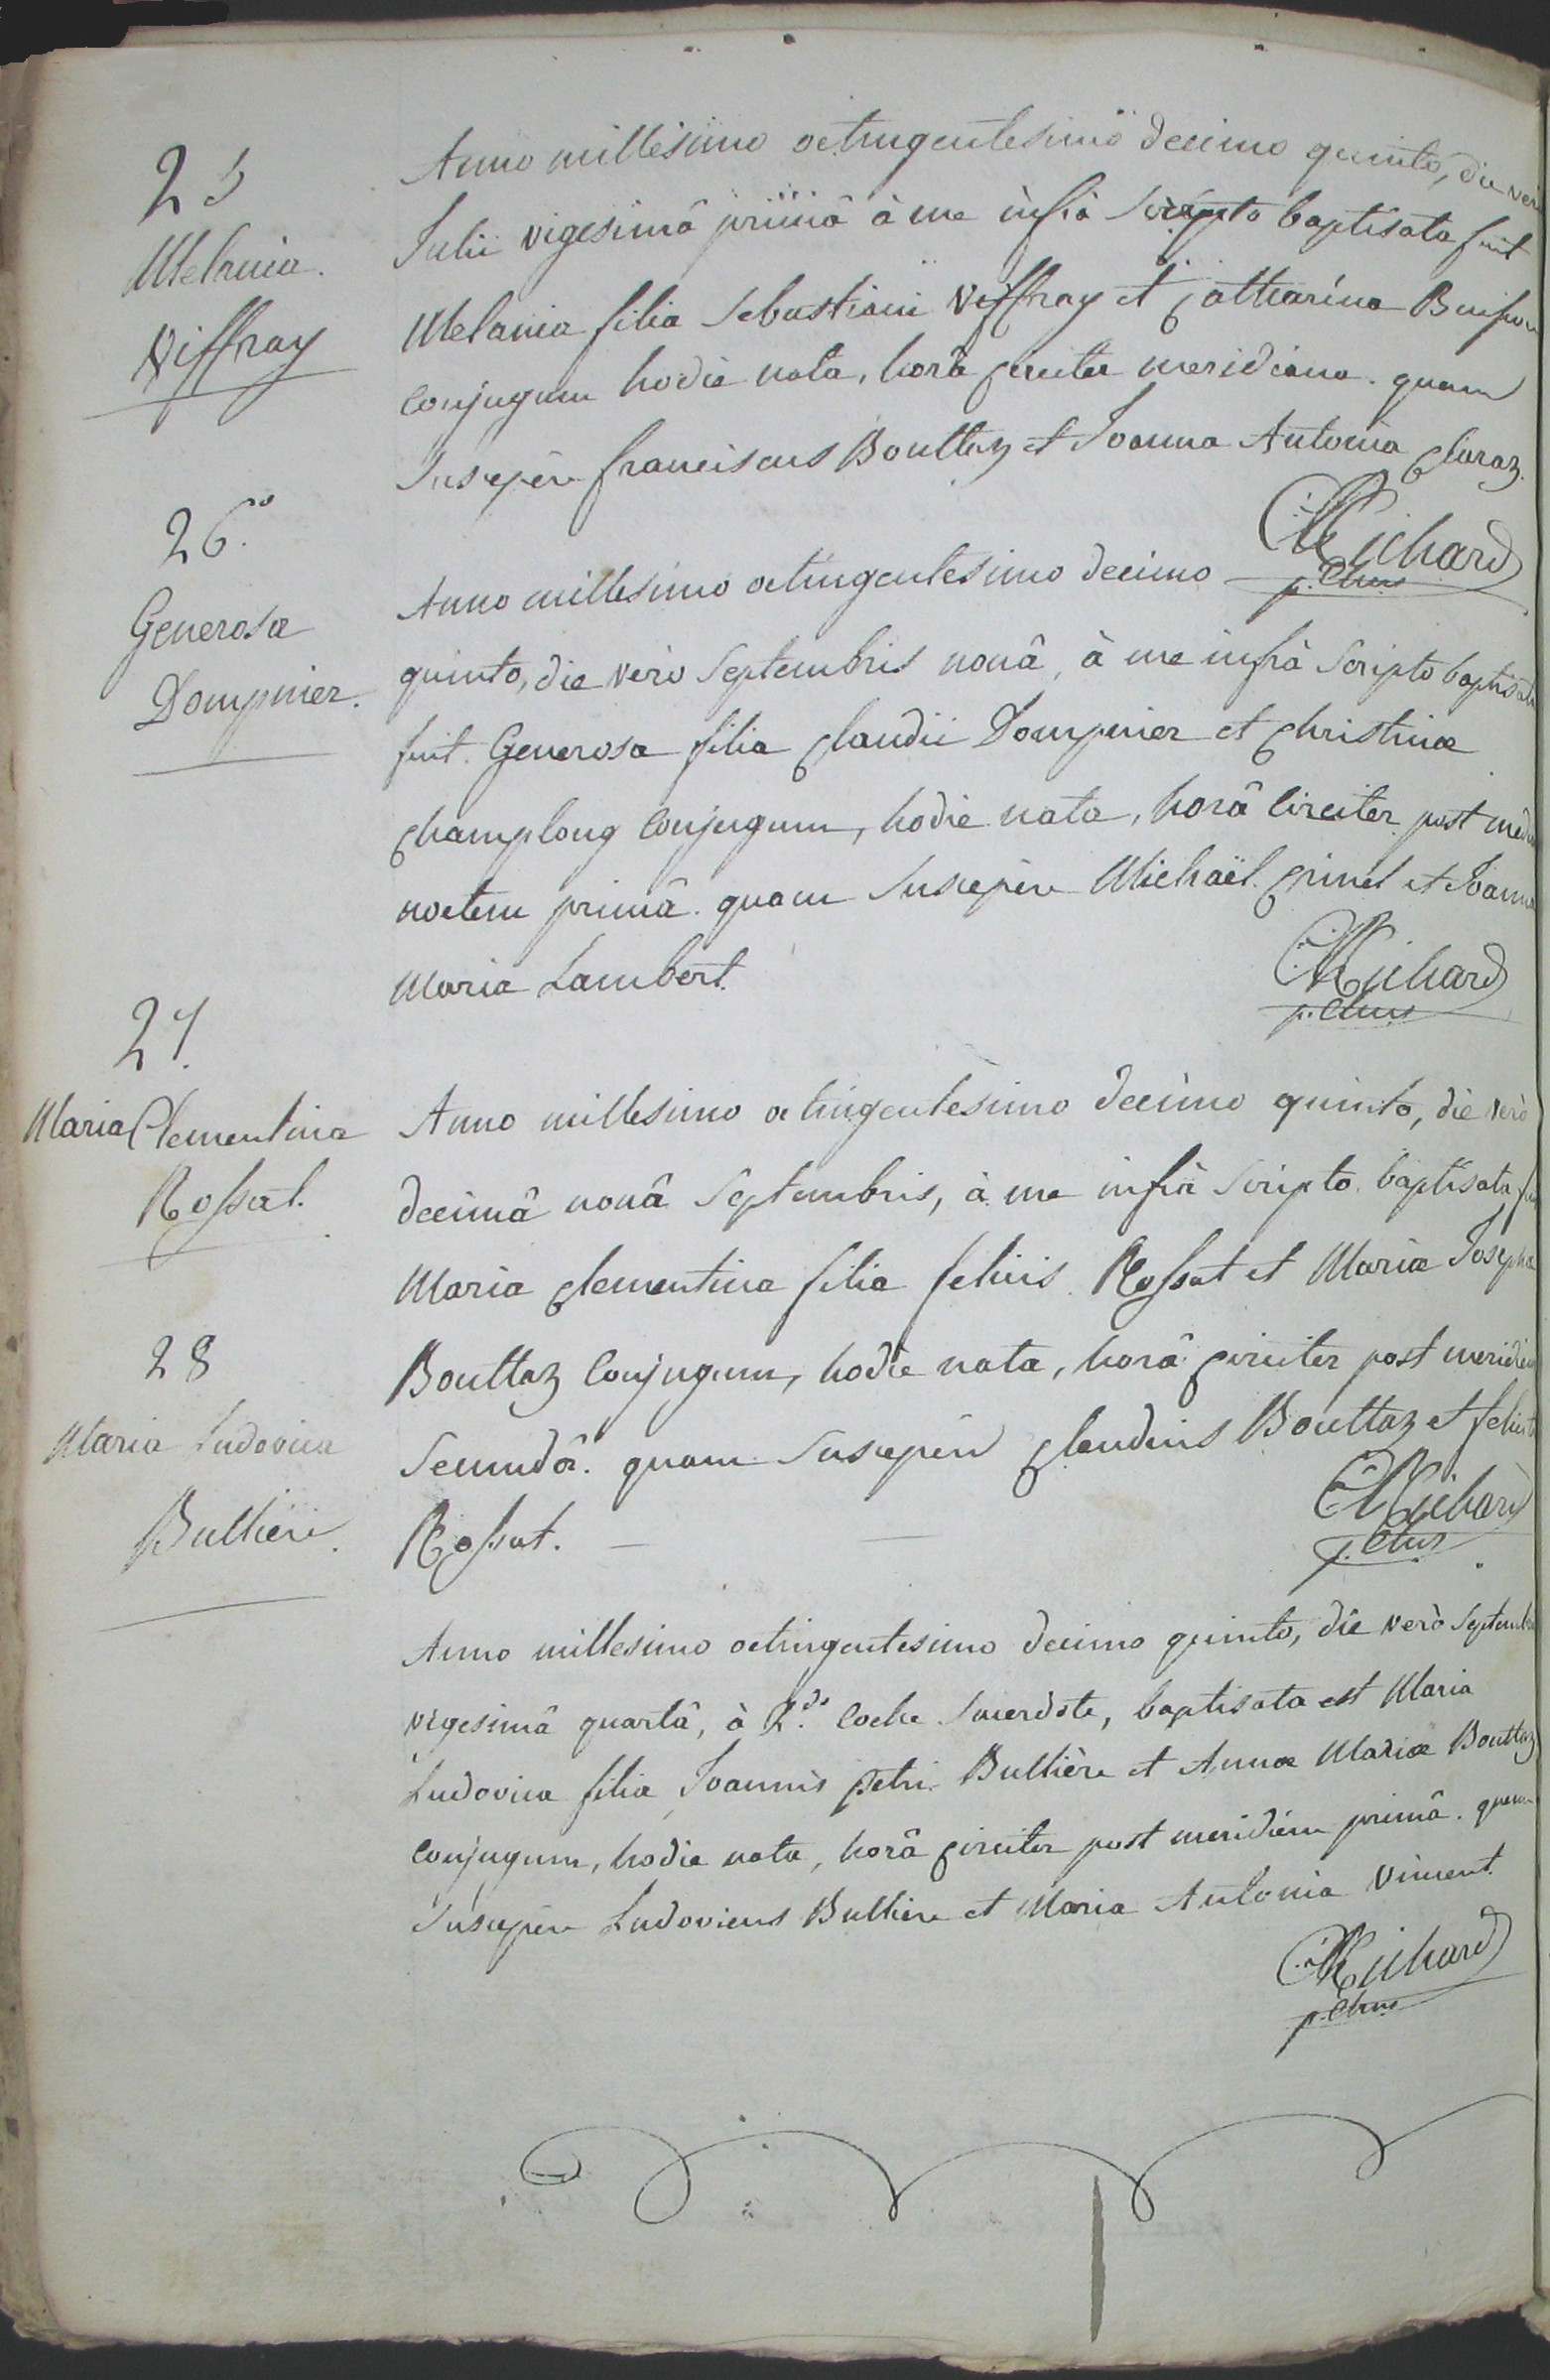 25
Melania.
Viffray
Anno millesimo octingentesimo decimo quinto, die verò
Julii vigesimâ primâ à me infrà scripto baptisata fuit
Melania filia Sebastiani Viffray et Catharina
conjugum hodie nata, horâ circiter meridiana. quam
Suscepêre franciscus Bouttaz et Joanna Antonia Claraz.
CRichard
p. Chus
26.°
Generosa
Dompnier.
Anno millesimo octingentesimo decimo
quinto, die verò Septembris nonâ, à me infrà Scripto baptisata
fuit. Generosa filia Claudii Dompnier et Christinæ
Champlong Conjugum, hodie nata, horâ Circiter post mediam
noctem primâ. quam Suscepêre Michaël. Grinel et Joanna
Maria Lambert.
CRichard
p. Chus
27.
Maria Clementina
Rossat.
Anno millesimo octingentesimo decimo quinto, die verò
decimâ nonâ Septembris, à me infrà Scripto baptisata fuit
Maria Clementina filia felicis Rossat et Mariæ Josephæ
Bouttaz Conjugum, hodie nata, horâ Circiter post meridiem
Secundâ. quam Suscepêre Claudius Bouttaz et
Rossat.
CRichard
p. Chus
28
Maria Ludovica
Bulliere.
Anno millesimo octingentesimo decimo quinto, die verò Septembris
vigesimâ quartâ, à R.do Coche Sacerdote, baptisata est Maria
Ludovica filia Joannis petri Bullière et Annæ Mariæ Bouttaz
conjugum, hodie nata, horâ circiter post meridiem primâ. quam
Suscepêre Ludovicus Bulliere et Maria Antonia Vincent.
CRichard
p. Chus